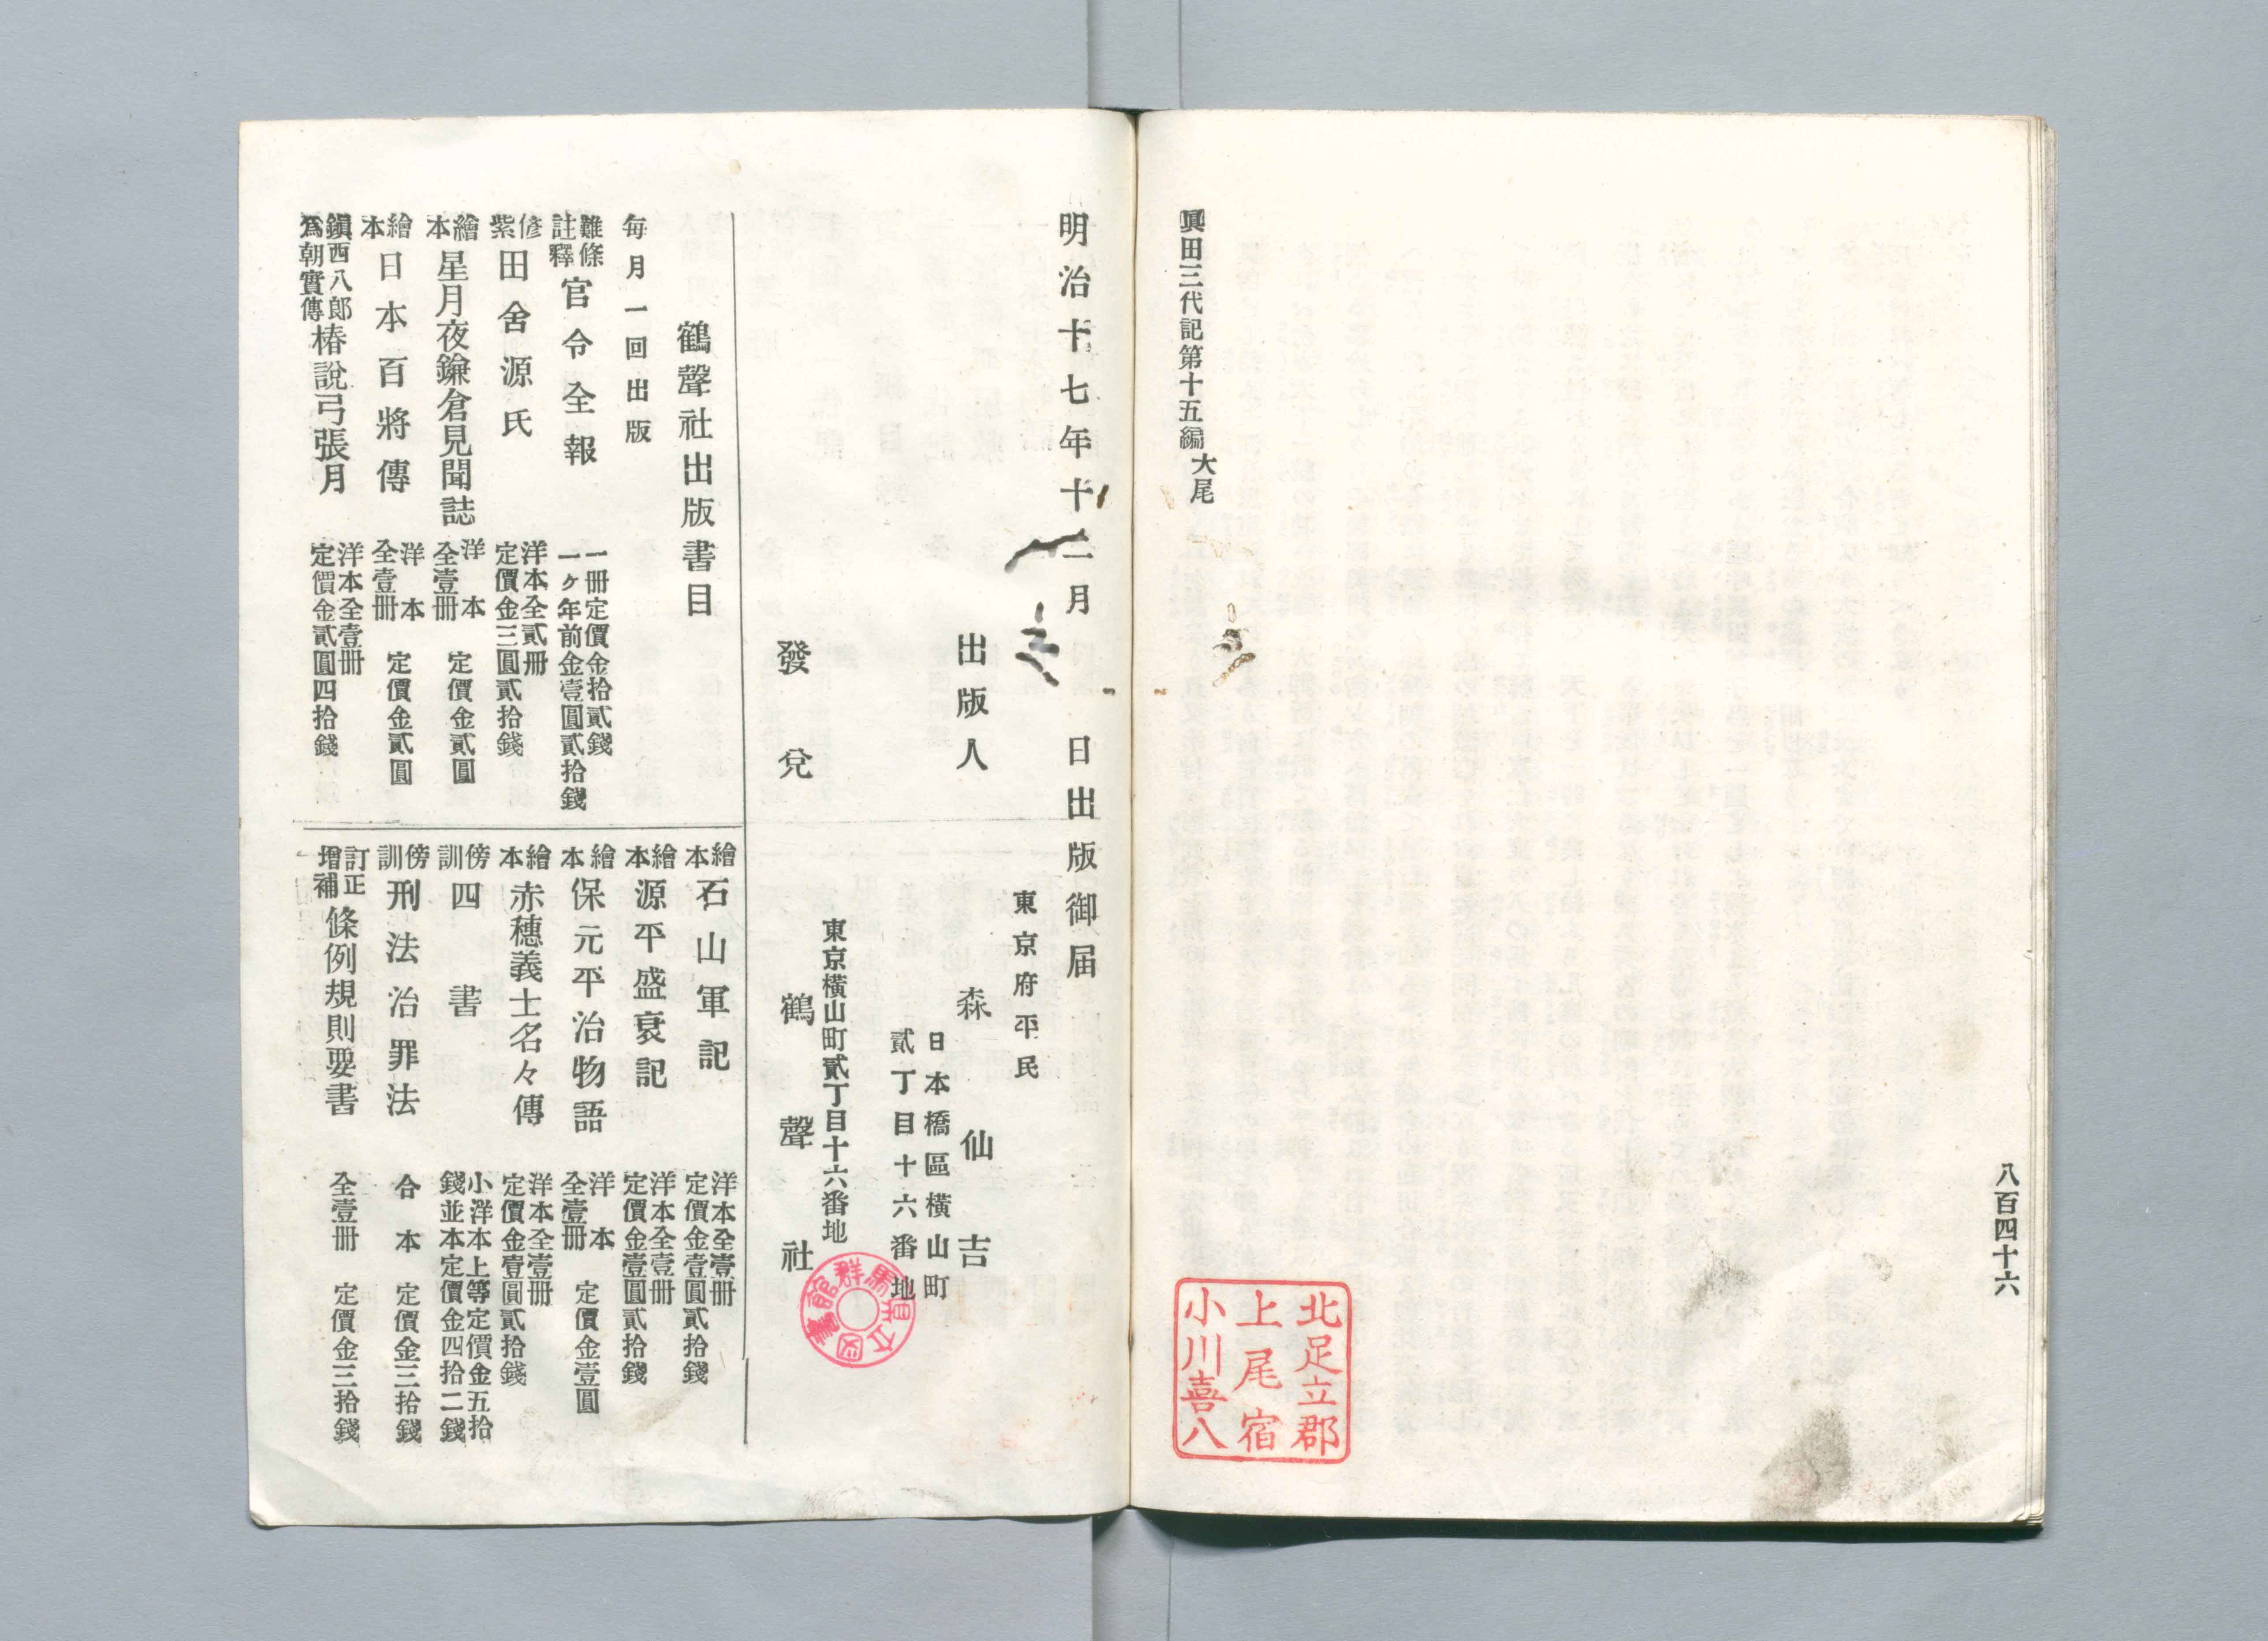 八百四十六
眞田三代記第十五編大尾
北足立郡
上尾宿
小川喜八
明治十七年十二月　日出版御届
東京府平民
出版人　森仙吉
日本橋區橫山町
貳丁目十六番地
東京橫山町貳丁目十六番地
發兌　鶴聲社
群馬縣立圖書館
鶴聲社出版書目
每月一回出版
難條註釋　官令全報　一冊定價金拾貳錢　一ヶ年前金壹圓貳拾錢
偐紫　田舍源氏　洋本全貳冊　定價金三圓貳拾錢
繪本　星月夜鎌倉見聞誌　洋本全壹冊　定價金貳圓
繪本　日本百將傳　洋本全壹冊　定價金貳圓
鎭西八郎爲朝實傳　椿說弓張月　洋本全壹冊　定價金貳圓四拾錢
繪本　石山軍記　洋本全壹冊　定價金壹圓貳拾錢
繪本　源平盛衰記　洋本全壹冊　定價金壹圓貳拾錢
繪本　保元平治物語　洋本全壹冊　定價金壹圓
繪本　赤穗義士名々傳　洋本全壹冊　定價金壹圓貳拾錢
傍訓　四書　小洋本上等定價金五拾錢並本定價金四拾二錢
傍訓　刑法治罪法　合本　定價金三拾錢
訂正增補　條例規則要書　全壹冊　定價金三拾錢